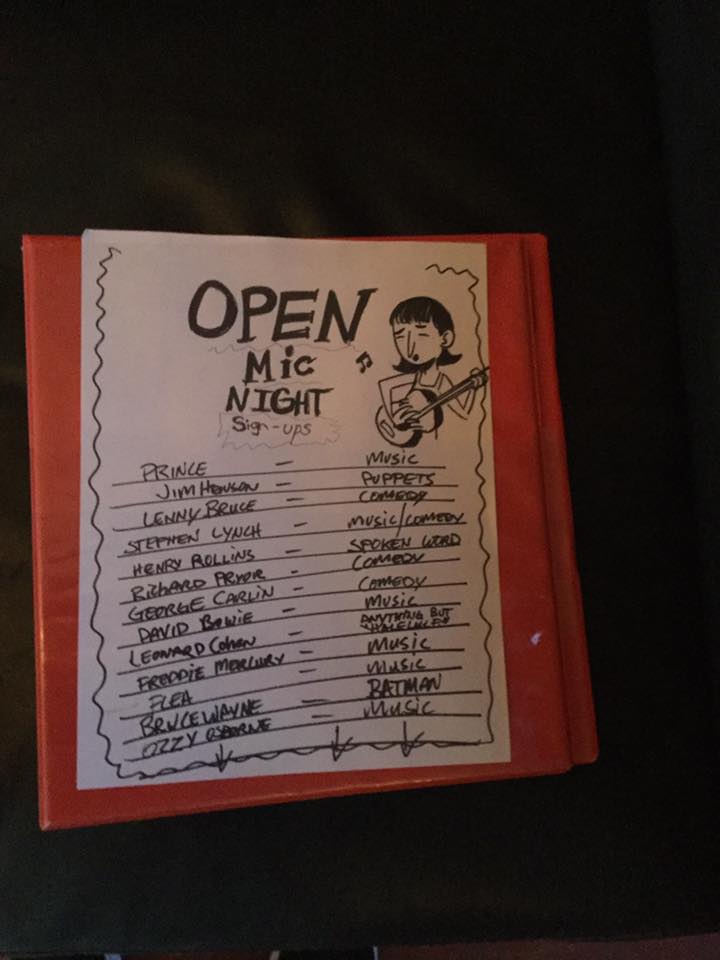 OPEN
Mic
NIGHT
Sign-ups
PRINCE – MUSIC
JIM HENSON – PUPPETS
LENNY BRUCE – COMEDY
STEPHEN LYNCH – MUSIC/COMEDY
HENRY ROLLINS – SPOKEN WORD
RICHARD PRYOR – COMEDY
GEORGE CARLIN – COMEDY
DAVID BOWIE – MUSIC
LEONARD COHEN – ANYTHING BUT
"HALELULEA"
FREDDIE MERCURY – MUSIC
FLEA – MUSIC
BRUCE WAYNE – BATMAN
OZZY OSBORNE – MUSIC